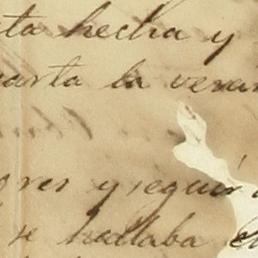 ta hecha y
arta la veran
res y seguir a
se hallaba en